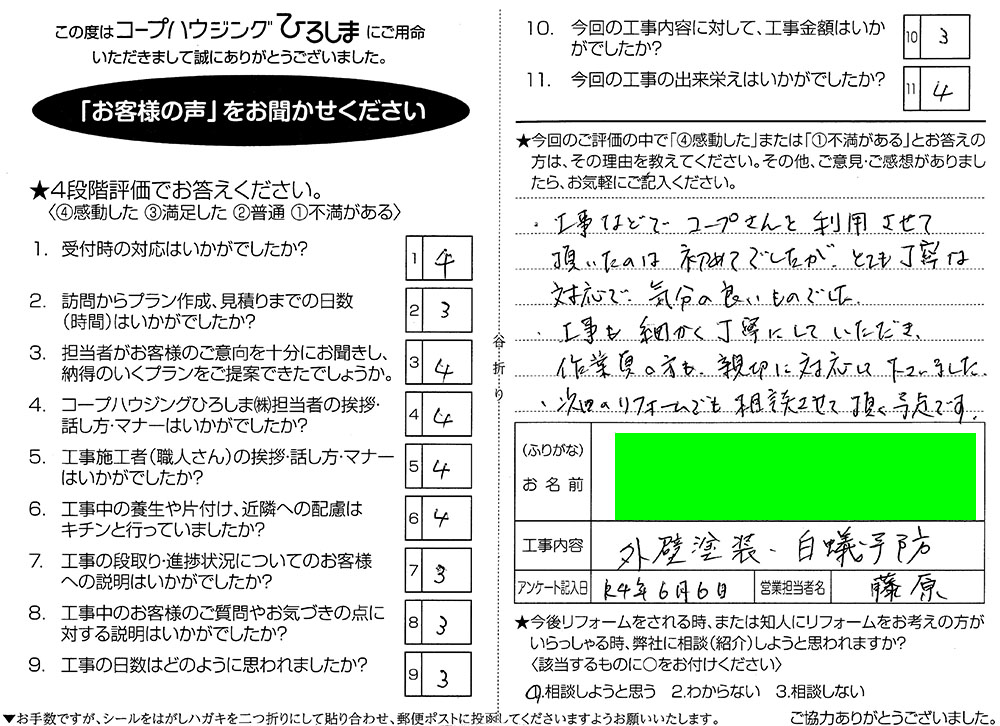 この度はコープハウジングひろしまにご用命
いただきまして誠にありがとうございました。
「お客様の声」をお聞かせください
★4段階評価でお答えください。
〈④感動した ③満足した ②普通 ①不満がある〉
1. 受付時の対応はいかがでしたか?
1 4
2. 訪問からプラン作成、見積りまでの日数
(時間)はいかがでしたか?
2 3
3. 担当者がお客様のご意向を十分にお聞きし、
納得のいくプランをご提案できたでしょうか。
3 4
4. コープハウジングひろしま㈱担当者の挨拶・
話し方・マナーはいかがでしたか?
4 4
5. 工事施工者(職人さん)の挨拶・話し方・マナー
はいかがでしたか?
5 4
6. 工事中の養生や片付け、近隣への配慮は
キチンと行っていましたか?
6 4
7. 工事の段取り・進捗状況についてのお客様
への説明はいかがでしたか?
7 3
8. 工事中のお客様のご質問やお気づきの点に
対する説明はいかがでしたか?
8 3
9. 工事の日数はどのように思われましたか?
9 3
谷折り
10. 今回の工事内容に対して、工事金額はいか
がでしたか?
10 3
11. 今回の工事の出来栄えはいかがでしたか?
11 4
★今回のご評価の中で「④感動した」または「①不満がある」とお答えの
方は、その理由を教えてください。その他、ご意見・ご感想がありまし
たら、お気軽にご記入ください。
・工事などで コープさんを利用させて
頂いたのは 初めてでしたが、とても丁寧な
対応で、気分の良いものでした。
・工事も細かく丁寧にしていただき、
作業員の方も、親切に対応して下さいました。
・次回のリフォームでも相談させて頂く予定です。
(ふりがな)
お名前
工事内容 外壁塗装・白蟻予防
アンケート記入日 R4年6月6日 営業担当者名 藤原
★今後リフォームをされる時、または知人にリフォームをお考えの方が
いらっしゃる時、弊社に相談(紹介)しようと思われますか?
〈該当するものに○をお付けください〉
1.相談しようと思う 2.わからない 3.相談しない
▼お手数ですが、シールをはがしハガキを二つ折りにして貼り合わせ、郵便ポストに投函してくださいますようお願いいたします。
ご協力ありがとうございました。